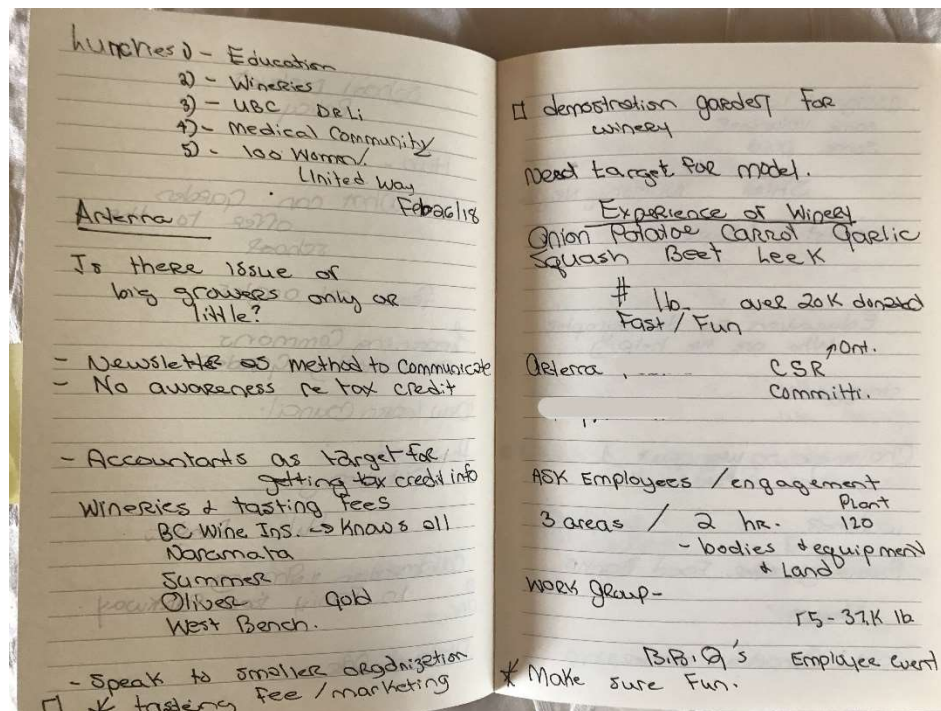 hunches 1) - Education
2) - Wineries
3) - UBC Deli
4) - Medical Community
5) - 100 Women/
United Way
Feb 26/18
Arterra
Is there issue of
big growers only or
little?
- Newsletter as method to communicate
- No awareness re tax credit
- Accountants as target for
getting tax credit info
Wineries & tasting fees
BC Wine Ins. -> knows all
Naramata
Summer
Oliver Gold
West Bench.
- Speak to smaller orgdnization
□ * tasteing fee / marketing
□ demostration garden for
winery
Need target for model.
Experience of Winery
Onion Potatoe Carrot Garlic
Squash Beet Leek
# lb. over 20K donated
Fast / Fun
Arterra, ...... CSR ↗Ont.
Committ.
ASK Employees / engagement
Plant
3 areas / 2 hr. 120
- bodies & equipment
& Land
Work group -
15-37K lb
B.B.Q's Employee event
* Make sure Fun.